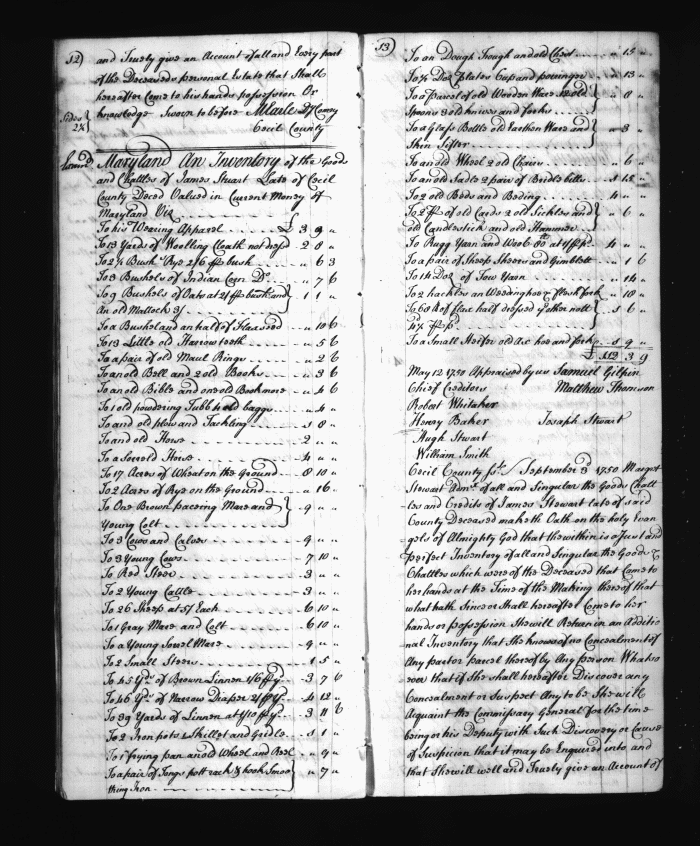 12)
and Truely give an Account of all and Every part
of the Deceaseds personal Estate that Shall
hereafter Come to his hands possession Or
knowledge Sworn to before
Cecil County
Sides
2¼
Maryland An Inventory of the Goods
and Chattles of James Stuart Late of Cecil
County Deced Valued in Current Money of
Maryland Viz
To his Wearing Apparel £ 3 9 "
To 13 Yards of Woolling Cloath not dresd 2 8 "
To 2½ Bush Rye 2/6 pr bush " 6 3
To 3 Bushels of Indian Corn Do " 7 6
To 9 Bushels of Oats at 2/ pr bush and } 1 1 "
An old Mattock 3/
To a Bushel and an half of flaxseed " 10 6
To 13 Little old Harrow teeth " 5 6
To a pair of old Maul Rings " 2 6
To an old Bell and 2 old Books " 3 6
To an old Bible and one old Book more " 4 6
To 1 old powdering Tubb 4 old baggs " 4 "
To and old plow and Tackling " 8 "
To and old Horse 2 " "
To a Sorreld Horse 4 " "
To 17 Acres of Wheat on the Ground 8 10 "
To 2 Acres of Rye on the Ground " 16 "
To One Brown pacering Mare and } 9 " "
Young Colt
To 3 Cows and Calves 9 " "
To 3 Young Cows 7 10 "
To Red Steer 3 " "
To 2 Young Cattle 3 " "
To 26 Sheep at 5/ Each 6 10 "
To 1 Gray Mare and Colt 6 10 "
To a Young Sorrel Mare 9 " "
To 2 Small Steers 1 5 "
To 45 Yds of Brown Linnen 1/6 pr y 3 7 6
To 46 Yds of Narrow Diaper 2/ pr Y 4 12 "
To 39 Yards of Linnen at 1/10 pr y 3 11 6
To 2 Iron pots 1 Skillet and Gridle 1 "
To 1 frying pan and old Wheel and Reel " 9 "
To a pair of Tongs pott rack & hook Smoo } " 7 "
thing Iron
13)
To an Dough Trough and old Chest " 15 "
To ½ Doz plates Cup and poringer " 13 "
To a parcel of old Wooden Ware 12 old } " 8 "
Spoons 3 old knives and forks
To a Glass Bottle old Earthen Ware and } " 3 "
Skin Sifter
To an old Wheel 2 old Chairs " 6 "
To an old Sadle 2 pair of Bridle bitts 12 "
To 2 old Beds and Beding 4 " "
To 2 pr of old Cards 2 old Sickles and } " 6 "
old Candlestick and old Hammer
To Rugg Yarn and Woob 4 " "
To a pair of Sheep Sheers and Gimblett " 1 6
To 14 Doz of Tow Yarn " 14 "
To 2 hackles an Weeding hoe & flesh fork " 18 "
To 60 lb of flax half dressed ye other nott } 1 6
4½ pr pd
To a Small Heifer old Ax hoe and fork 9 "
£ 112 3 9
May 12 1750 Appraised by us Samuel Gilpin
Chief Creditors Matthew Thomson
Robert Whitaker
Henry Baker Joseph Stwart
Hugh Stwart
William Smith
Cecil County st / September 3d 1750 Margret
Stewart Admx of all and Singular the Goods Chatt
les and Credits of James Stewart late of said
County Deceased maketh Oath on the holy Evan
gels of Almighty God that the within is a Just and
perfect Inventory of all and Singular the Goods &
Chattles which were of the Deceased that Came to
her hands at the Time of the Making thereof that
what hath Since or Shall hereafter Come to her
hands or possession She will Return in an Additio
nal Inventory that She knows of no Concealment of
Any part or parcel thereof by Any person Whatso
ever that if She shall hereafter Discover any
Concealment or Suspect Any to be She will
Acquaint the Commissary General for the time
being or his Deputy with Such Discovery or Cause
of Suspicion that it may be Enquired into and
that She will well and Truely give an Account of